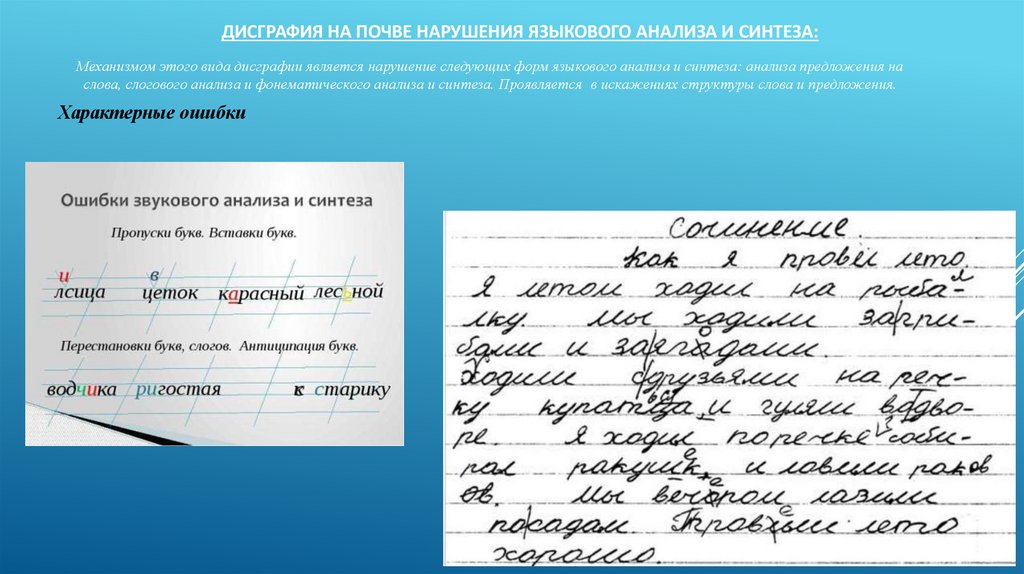 ДИСГРАФИЯ НА ПОЧВЕ НАРУШЕНИЯ ЯЗЫКОВОГО АНАЛИЗА И СИНТЕЗА:
Механизмом этого вида дисграфии является нарушение следующих форм языкового анализа и синтеза: анализа предложения на
слова, слогового анализа и фонематического анализа и синтеза. Проявляется в искажениях структуры слова и предложения.
Характерные ошибки
Ошибки звукового анализа и синтеза
Пропуски букв. Вставки букв.
и в
лсица цеток карасный лесьной
Перестановки букв, слогов. Антиципация букв.
водчика ригостая к старику
Сочинение.
Как я провёл лето.
Я летом ходил на рыба-
лку. Мы ходили загри-
бами и заягадами.
Ходили сдрузьями на реч-
ку купатца и гуляли вдво-
ре. Я ходил поречке соби-
рал ракушк, и ловили раков
ов. Мы вечором лазили
посадам. Провхыли лето
хорошо.